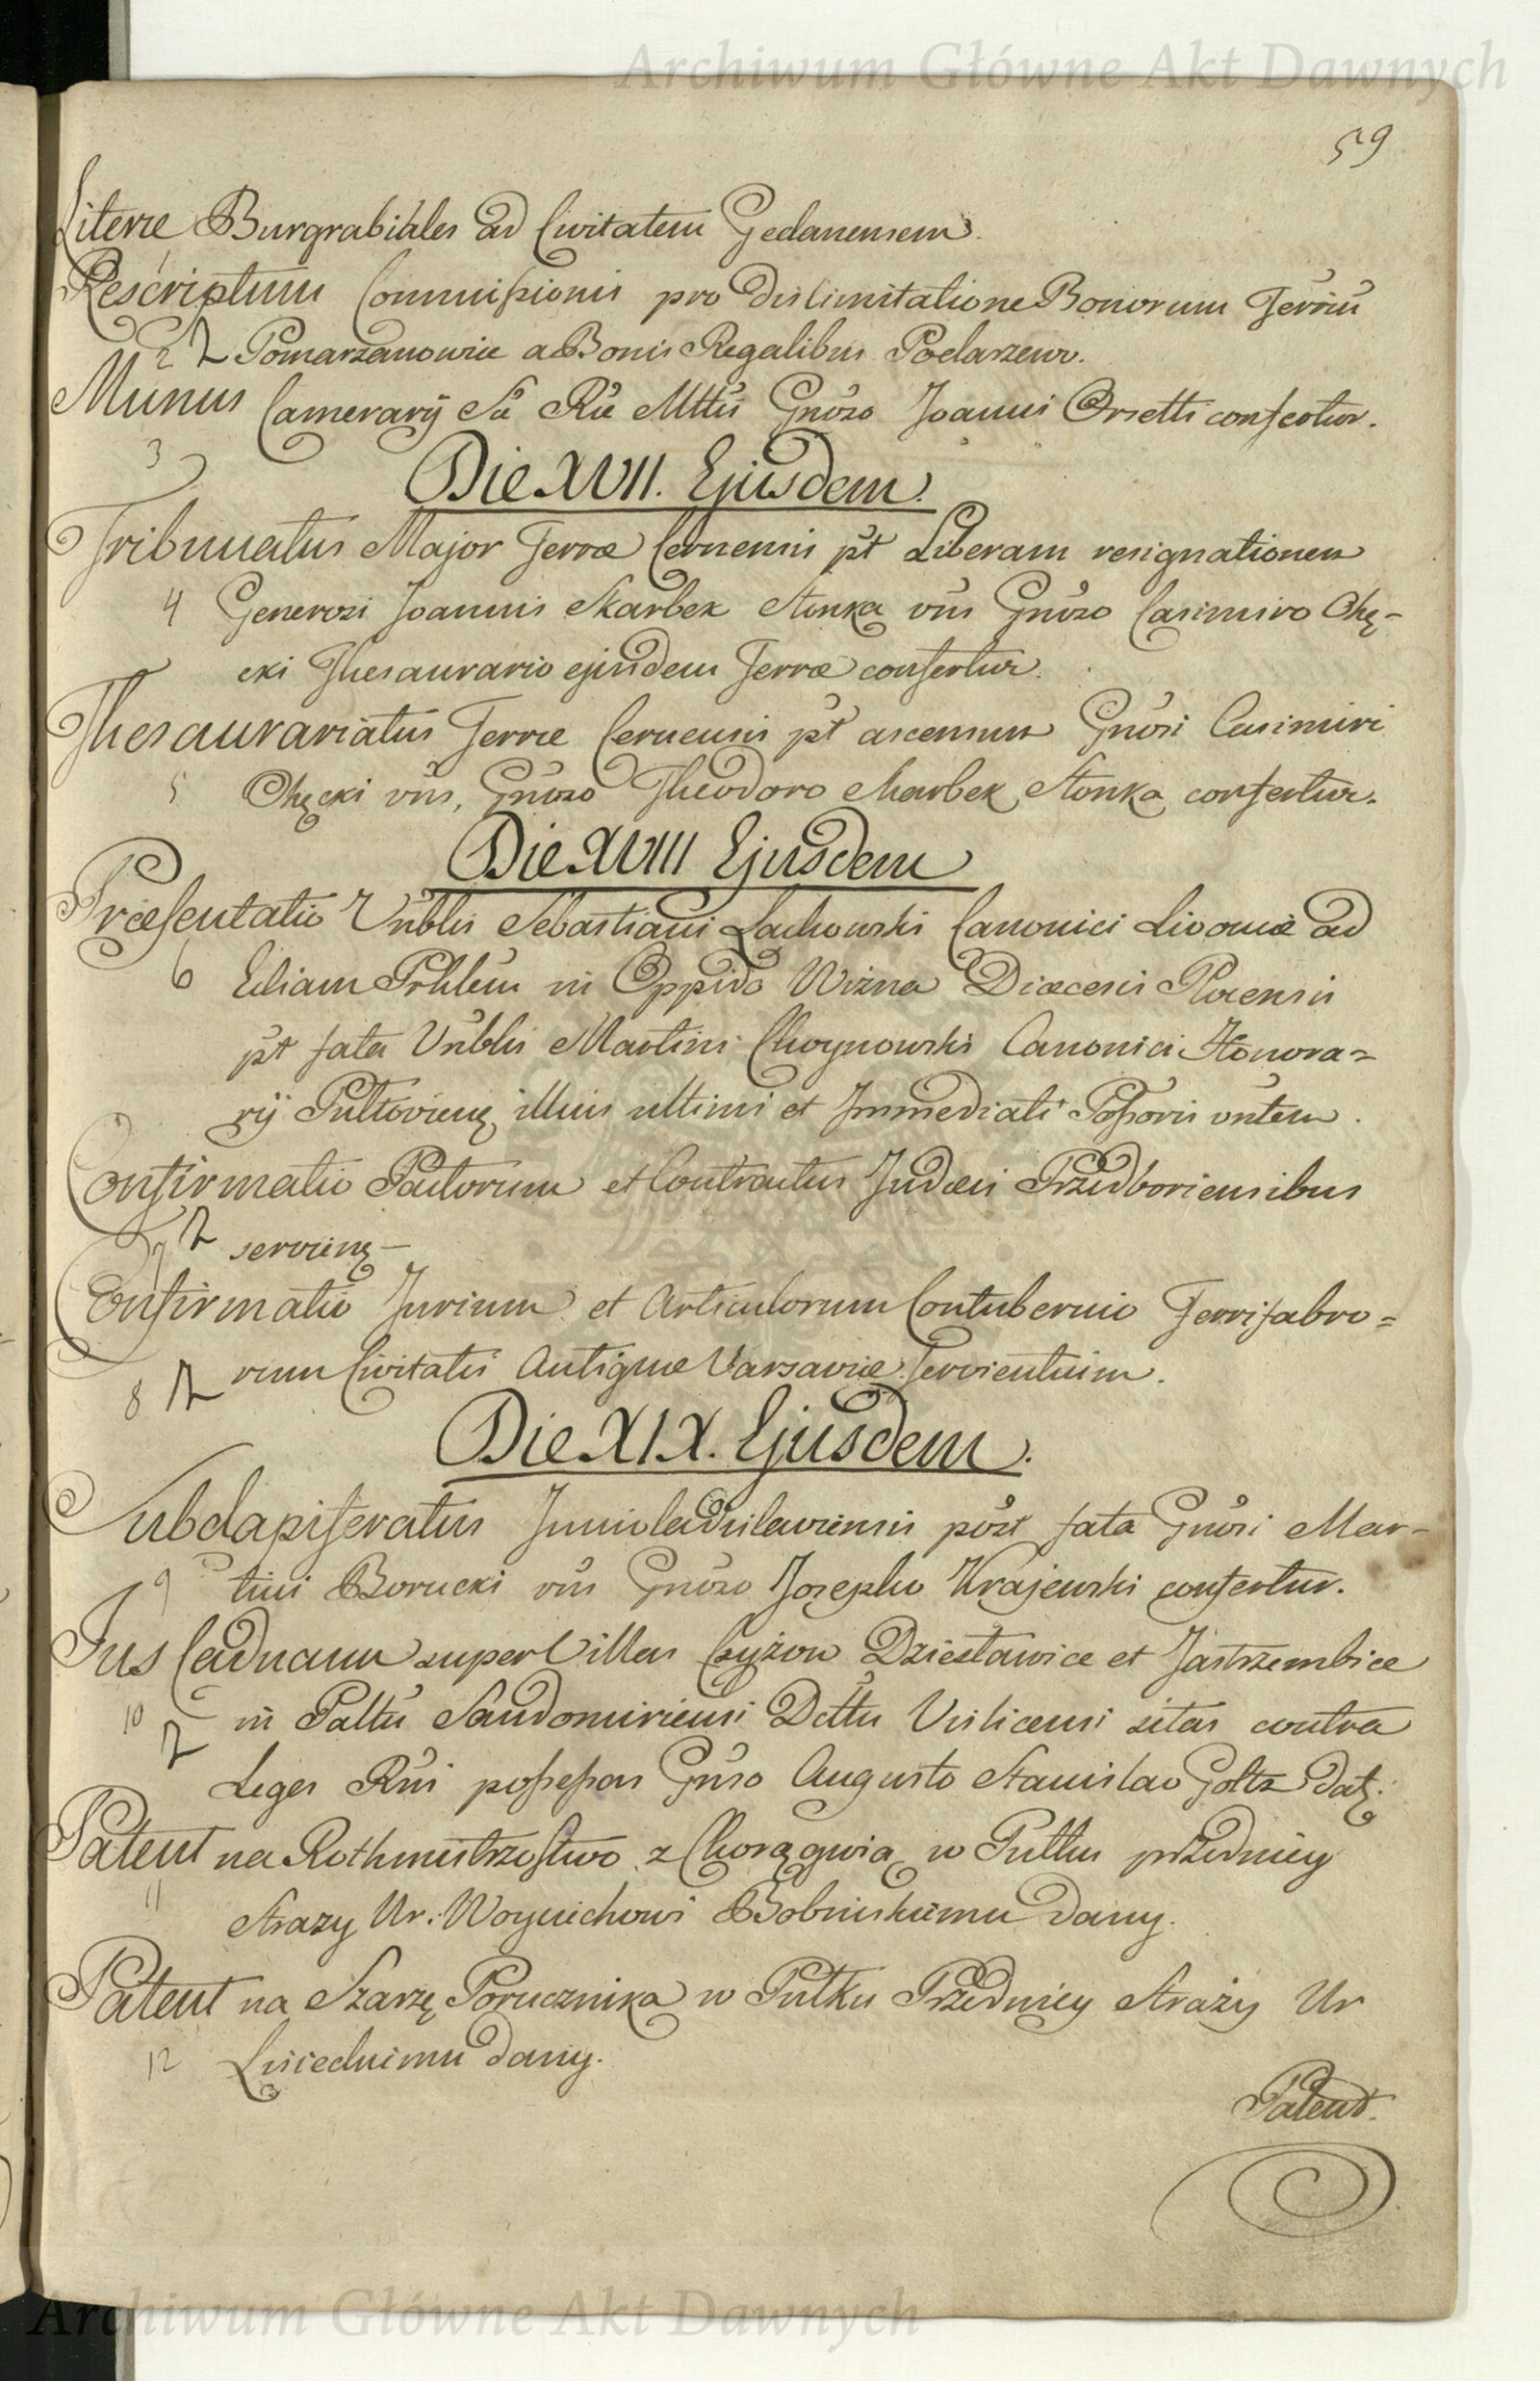 Archiwum Główne Akt Dawnych
59
Literæ Burgrabiales ad Civitatem Gedanensem.
1
Rescriptum Commissionis pro dislimitatione Bonorum Terrūū
2 Pomarzanowice a Bonis Regalibus Podarzewo.
Munus Camerarij Sæ Ræ Mttis Gnoso Joanni Orsetti confertur.
3
Die XVII. Ejusdem.
Tribunatus Major Terræ Cernensis pt Liberam resignationem
4 Generosi Joannis Skarbek Stonka vūs Gnoso Casimiro Chę-
cki Thesaurario ejusdem Terræ confertur.
Thesaurariatus Terræ Cernensis pt ascensum Gnosi Casimiri
5 Chęcki vūs, Gnoso Theodoro Skarbek Stonka confertur.
Die XVIII Ejusdem
Præsentatio Vnblis Sebastiani Lachowski Canonici Livoniæ ad
6 Ecliam Prhlem in Oppido Wizna Diæcesis Plocensis
pt fata Vnblis Martini Choynowski Canonici Honora=
rij Pultovien, illius ultimi et Immediati Possoris vntem.
Confirmatio Pactorum et Contractus Judæis Przedboriensibus
7 servien—
Confirmatio Jurium et Articulorum Contubernio Ferrifabro=
8 rum Civitatis Antiquæ Varsaviæ servientium.
Die XIX. Ejusdem.
Subdapiferatus Junivladislaviensis post fata Gnosi Mar-
9 tini Borucki vūs Gnoso Josepho Krajewski confertur.
Jus Caducum super Villas Czyżow Dziesławice et Jastrzembice
10 in Pałtu Sandomiriensi Dcttu Vislicensi sitas contra
Leges Rni possessas Gnso Augusto Stanislao Goltz dat.
Patent na Rothmistrzostwo z Chorągwią w Pułku przedniey
11
Strazy Ur: Woyciechowi Bobinskiemu dany.
Patent na Szarżę Porucznika w Pułku Przedniey Straży Ur
12 dany.
Patent.
Archiwum Główne Akt Dawnych